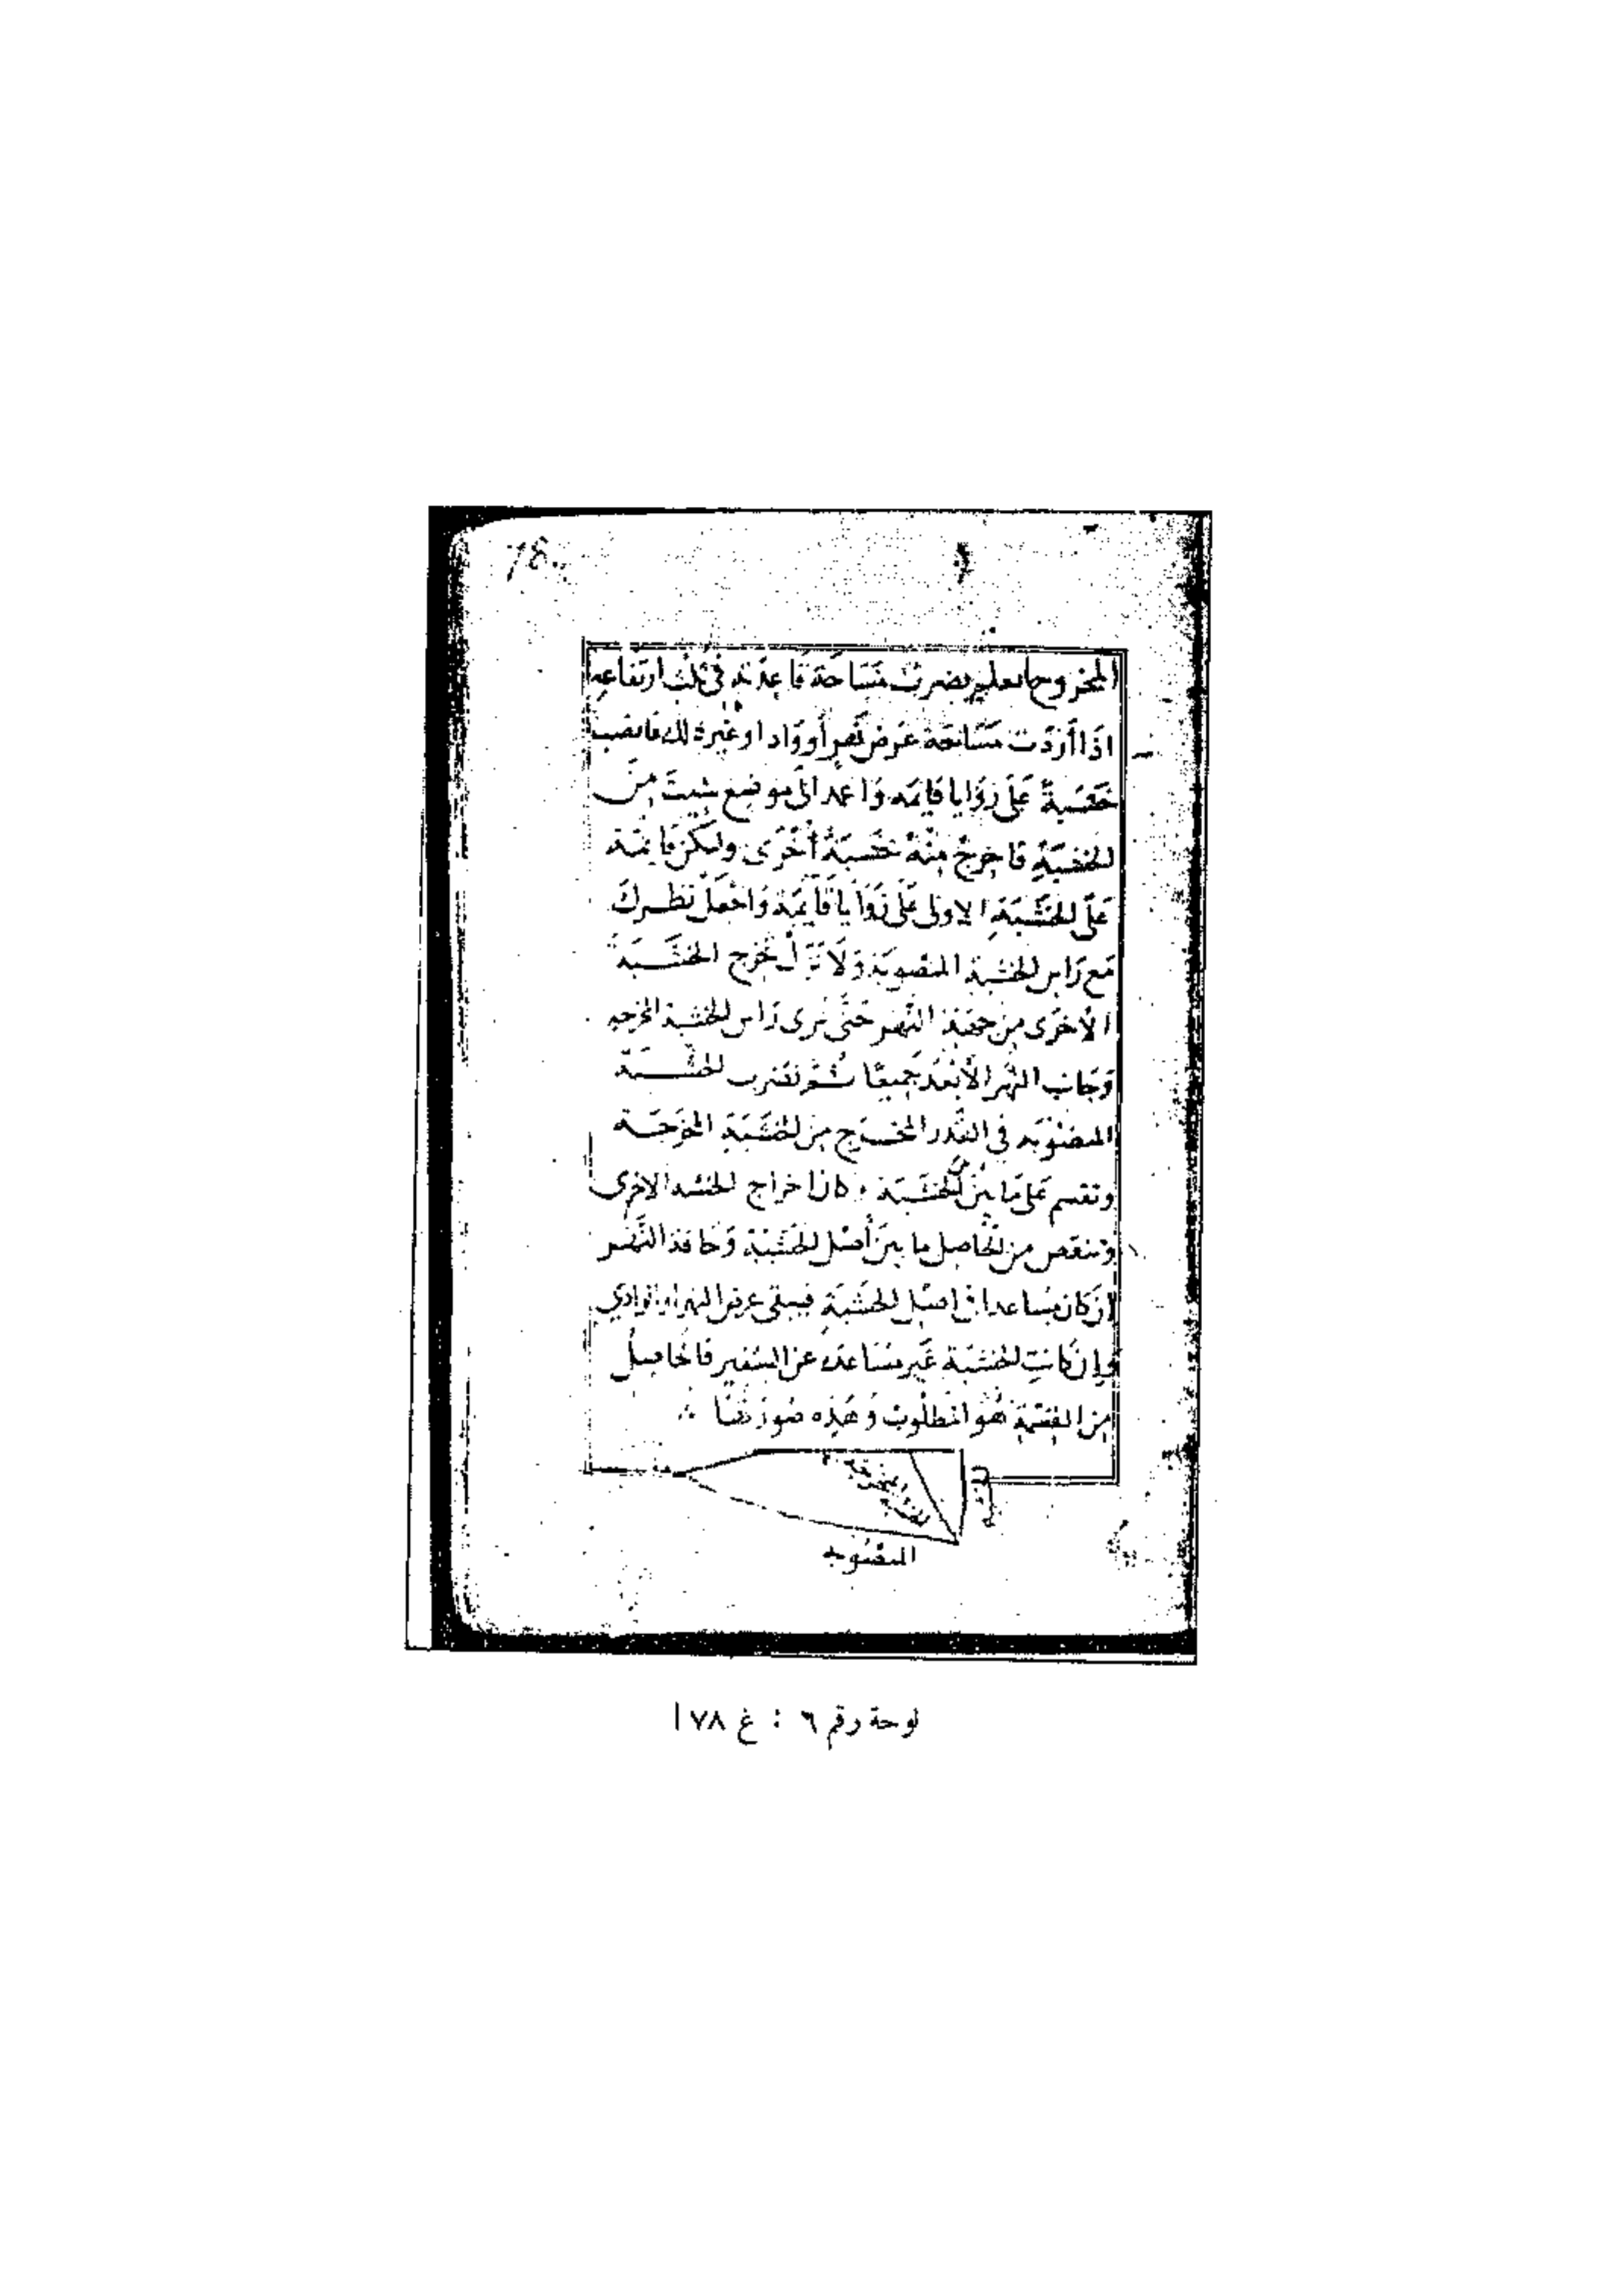 78
المخروط تضرب مساحة قاعدته في ثلث ارتفاعه
اذا أردت مساحة عرض نهر أو واد او غير ذلك فانصب
خشبة على زوايا قايمه واعمد الى موضع شيت من
الخشبة فاخرج منه خشبة أخرى ولتكن قايمة
على الخشبة الاولى على زوايا قايمة واجعل نظرك
مع راس الخشبة المنصوبة ولا تزال تخرج الخشبة
الأخرى من جهة النهر حتى ترى راس الخشبة المخرجه
وجانب النهر الأبعد جميعا ثم تضرب الخشبة
المنصوبه في القدر المخرج من الخشبة المخرجة
وتقسم على ما بين الخشبة كان اخراج الخشبه الاخرى
وتنقص من الحاصل ما بين أصل الخشبة وحافة النهر
ان كان متباعدا اصل الخشبة فيبقى عرض النهر او الوادي
وان كانت الخشبة غير متباعده عن الشفير فالحاصل
من القسمة هو المطلوب وهذه صورتها
المنصوبه
لوحة رقم ٦ : غ ١٧٨